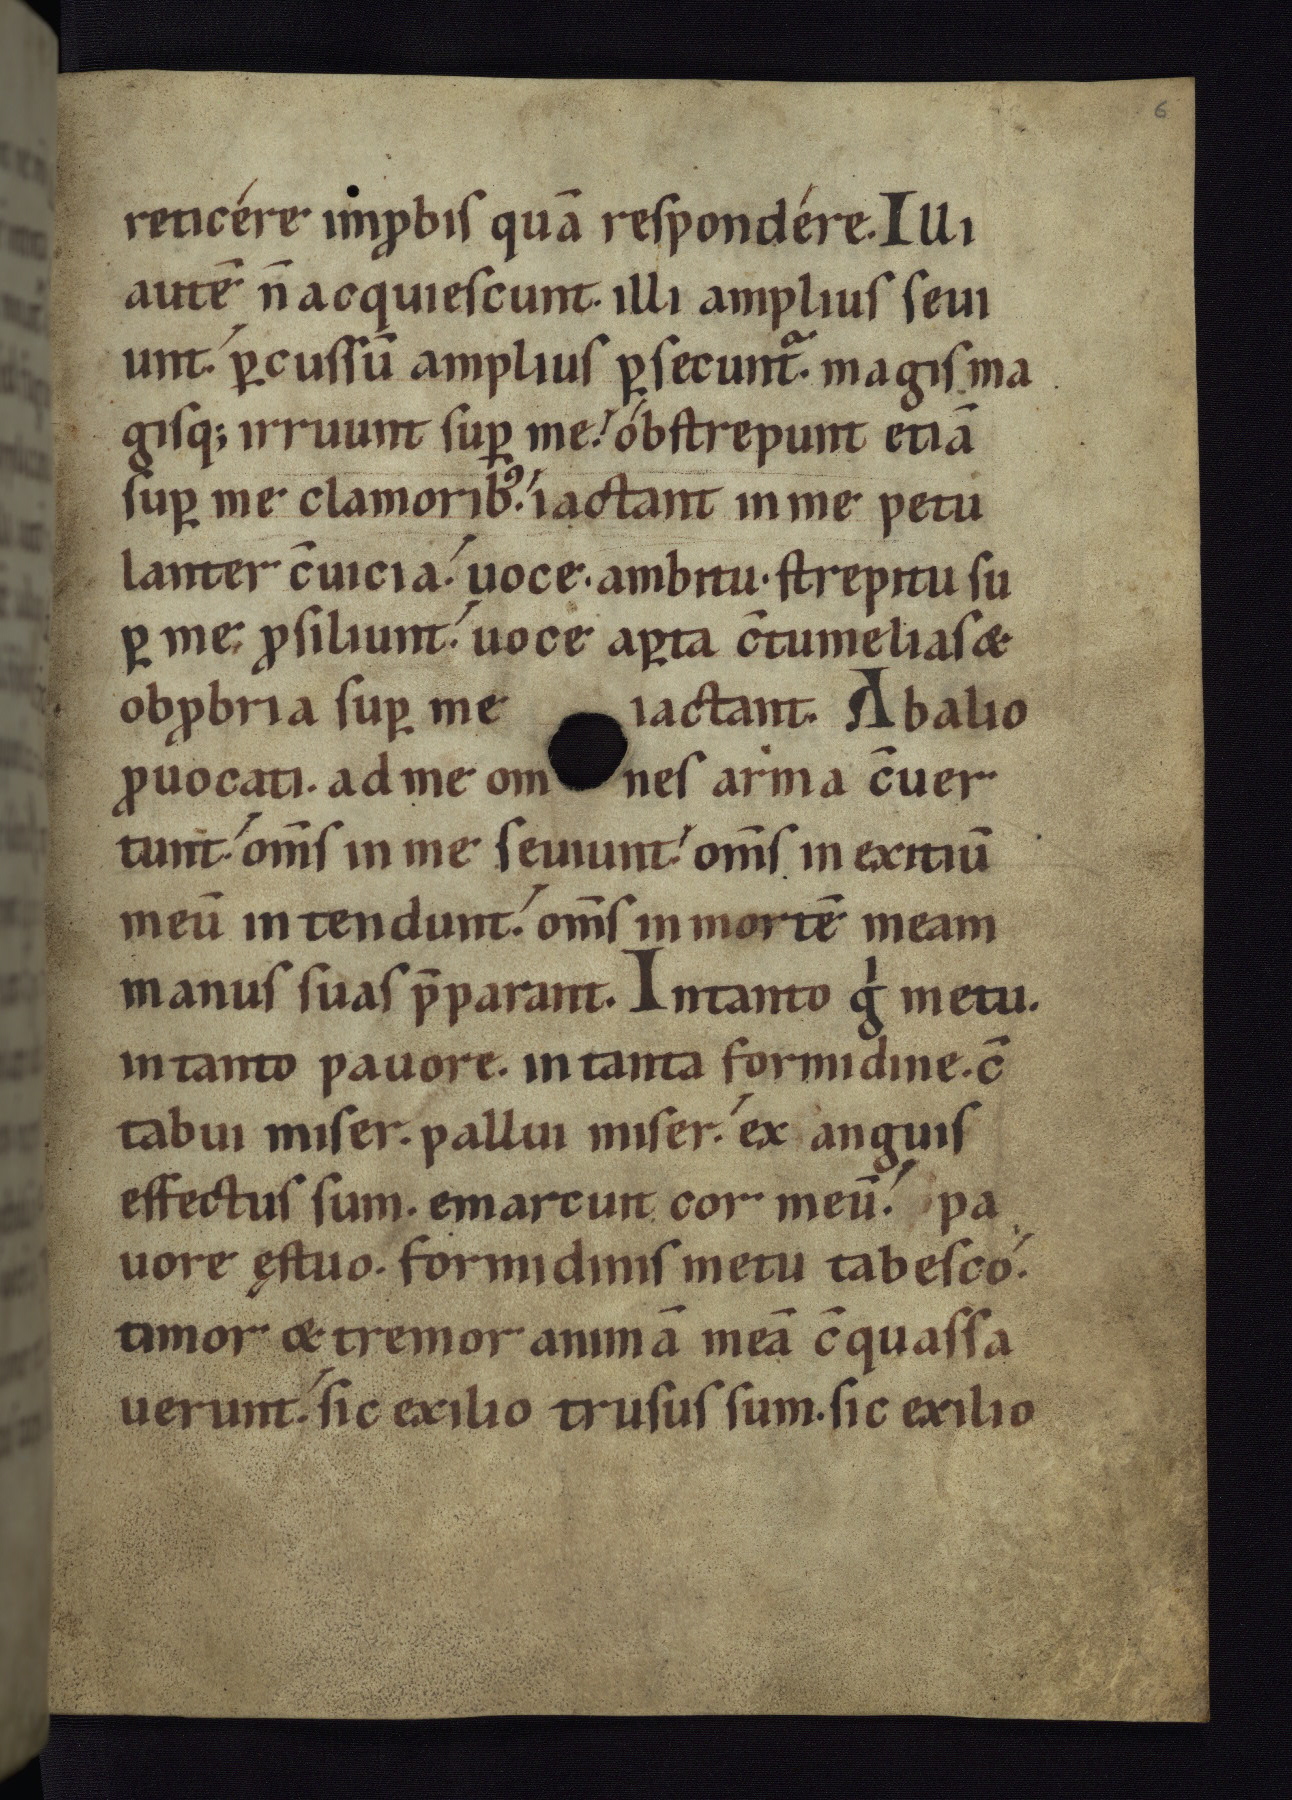 6
reticére imꝓbis quā respondére. Illi
autē n̄ acquiescunt. illi amplius seui
unt. ꝑcussū amplius ꝑsecuntᷓ. magis ma
gisq; irruunt suꝑ me. óbstrepunt etiā
suꝑ me clamorib᾿. iactant in me petu
lanter c̄uicia. uoce. ambitu. strepitu su
ꝑ me ꝓsiliunt. uoce aꝑta c̄tumelias &
obꝓbria suꝑ me iactant. Ab alio
ꝓuocati. ad me omnes arma c̄uer
tunt. om̄s in me seuiunt. om̄s in exitiū
meū intendunt. om̄s in mortē meam
manus suas p̄parant. In tanto gͥ metu.
in tanto pauore. in tanta formidine. c̄
tabui miser. pallui miser. ex anguis
effectus sum. emarcuit cor meū. pa
uore ęstuo. formidinis metu tabescó.
timor & tremor animā meā c̄quassa
uerunt. sic exilio trusus sum. sic exilio